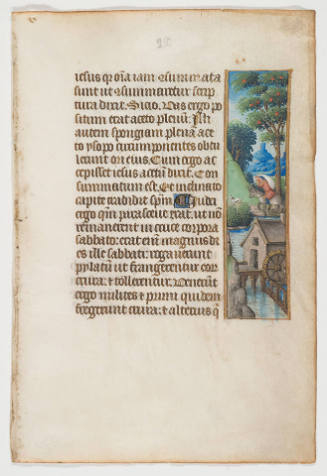 iesus qꝛ oĩa iam ꝯsummata
sunt ut ꝯsummaretur scrip
tura dixit. Sicio. Vas ergo po
situm erat aceto plenũ. Illi
autem spongiam plenã ace
to ysopo circumponentes obtu
lerunt ori eius. Cum ergo ac
cepisset iesus acetũ dixit. Con
summatum est. Et inclinato
capite tradidit spm̃. Iudei
ergo qm̃ parasceue erat: ut nõ
remanerent in cruce corpora
sabbato: erat eni͂ magnus di
es ille sabbati: rogauerunt
pylatũ ut frangerentur eor
crura: ⁊ tollerentur. Venerũt
ergo milites et primi quidem
fregerunt crura: et alterius q̃